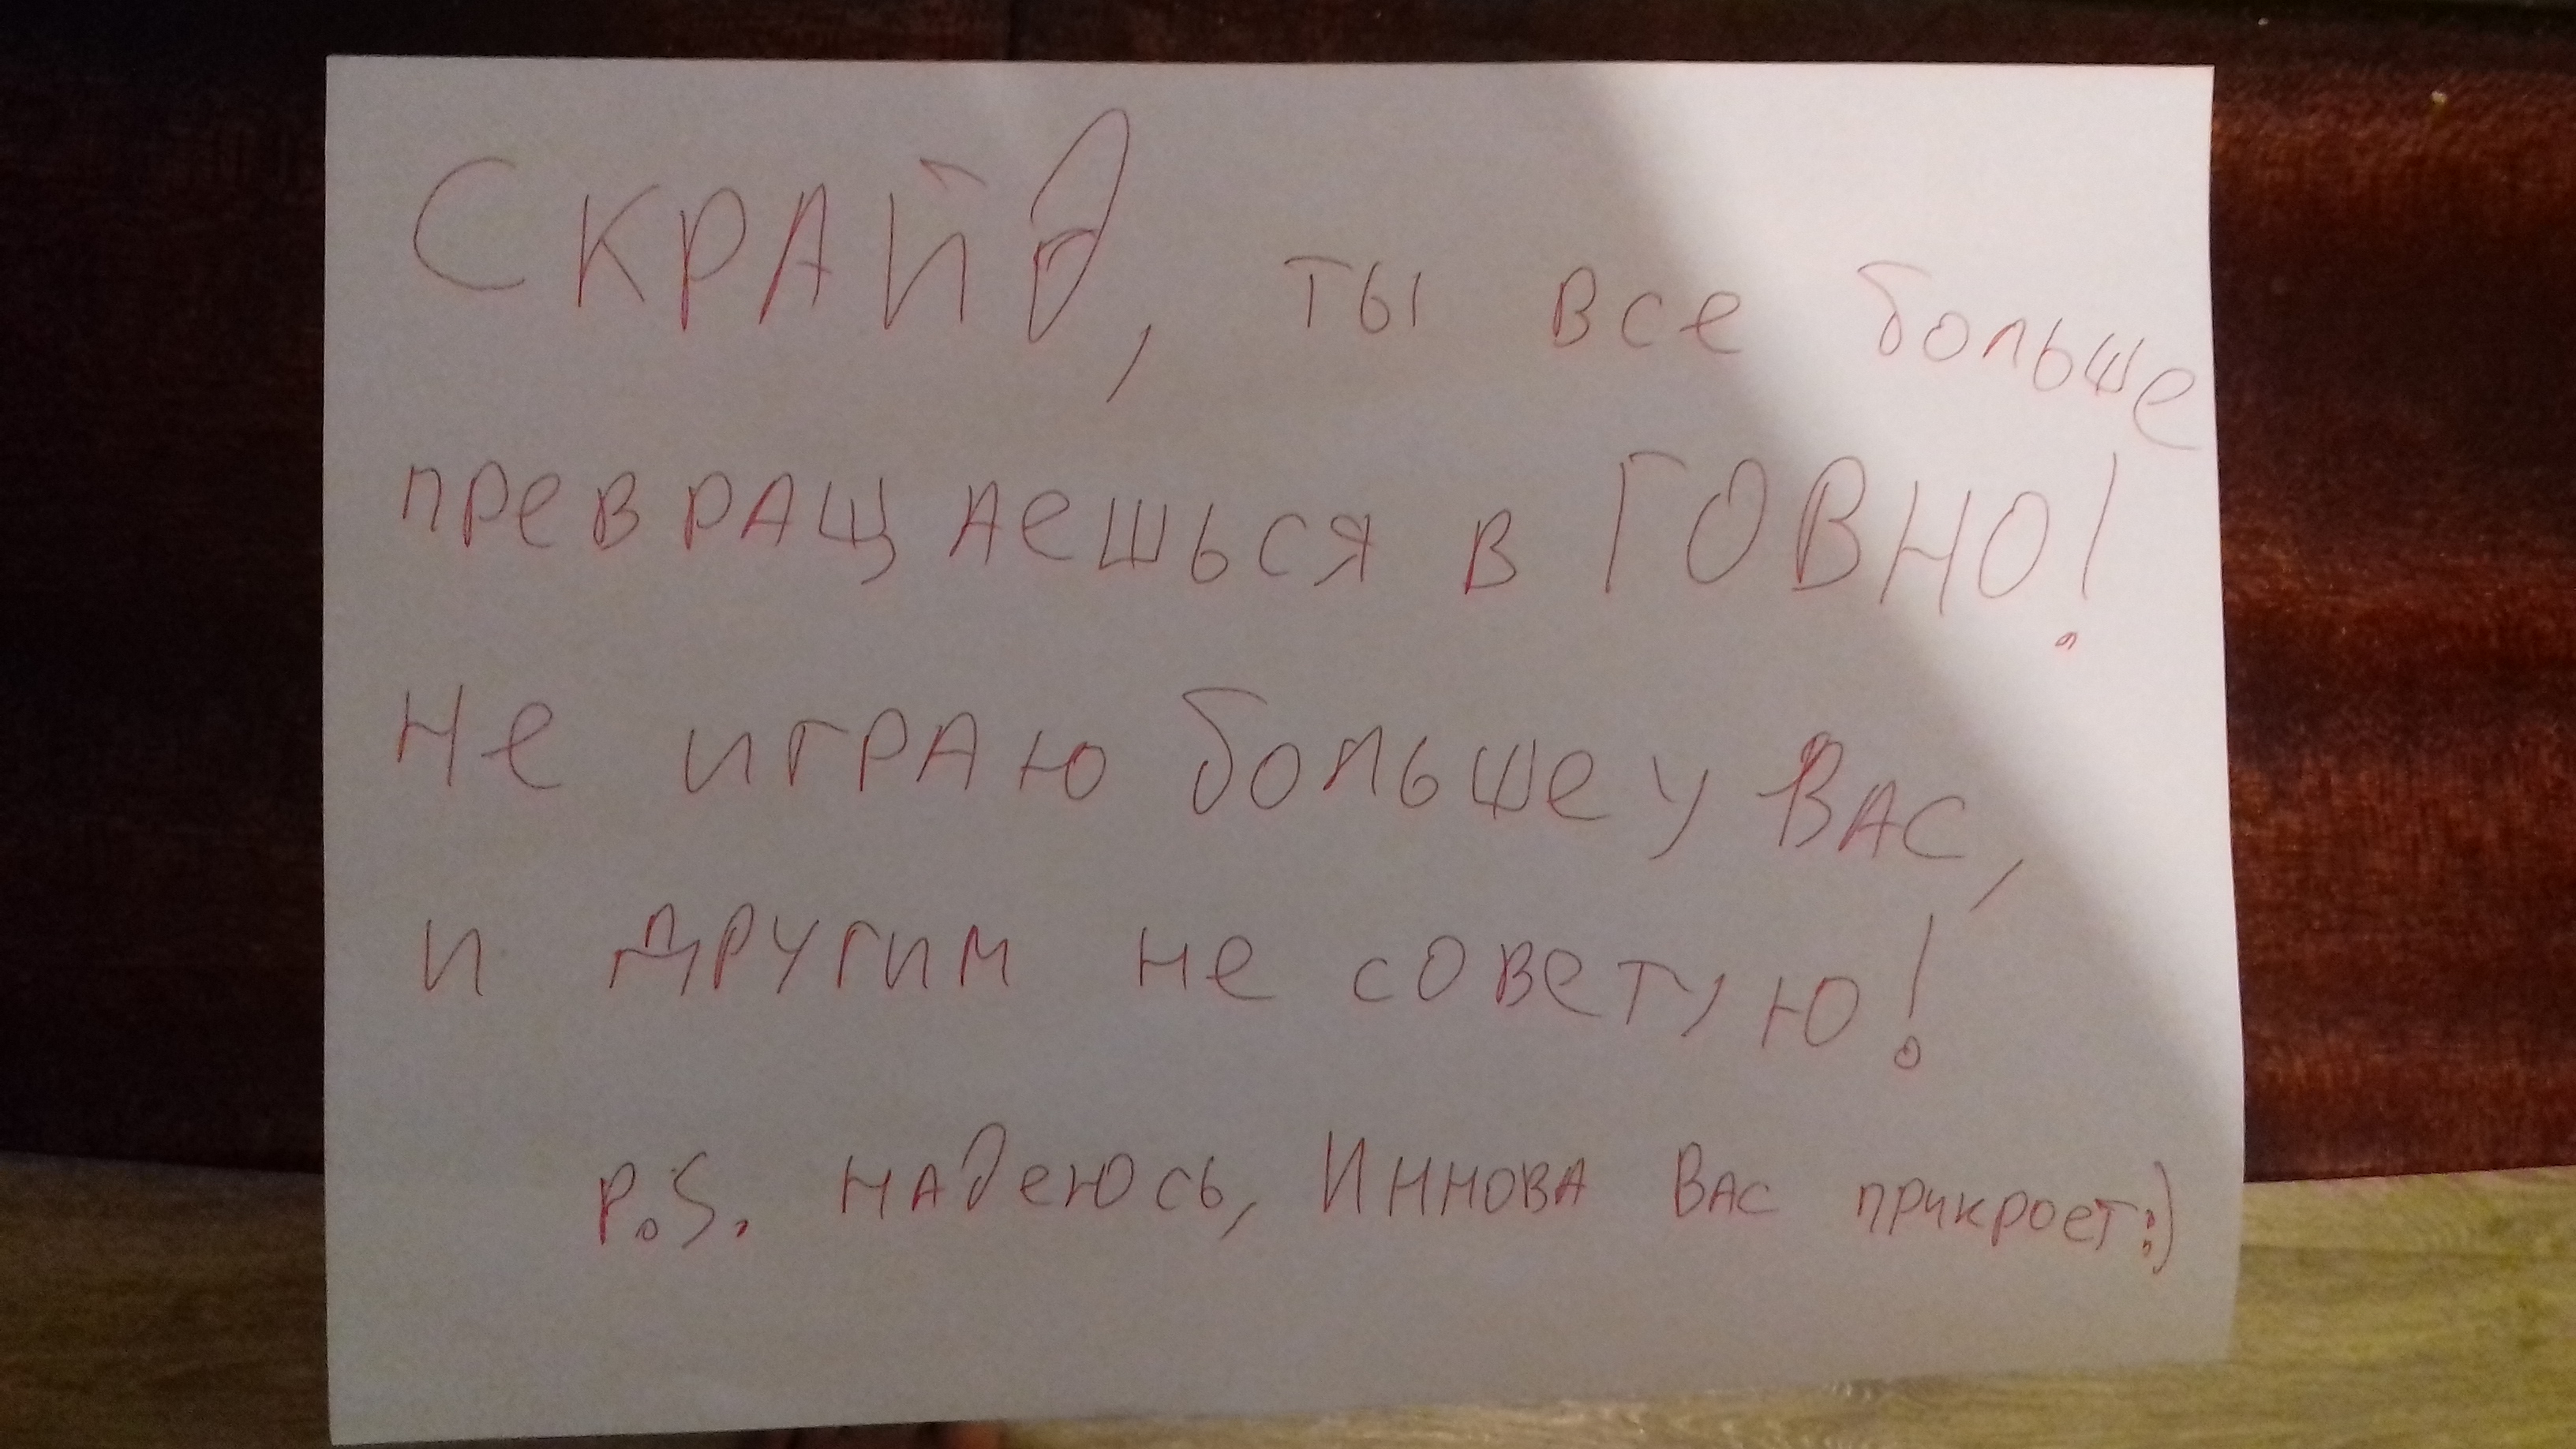 СКРАЙд, ты все больше
превращаешься в ГОВНО!
Не играю больше у Вас,
и другим не советую!
P.S. надеюсь, Иннова Вас прикроет:)